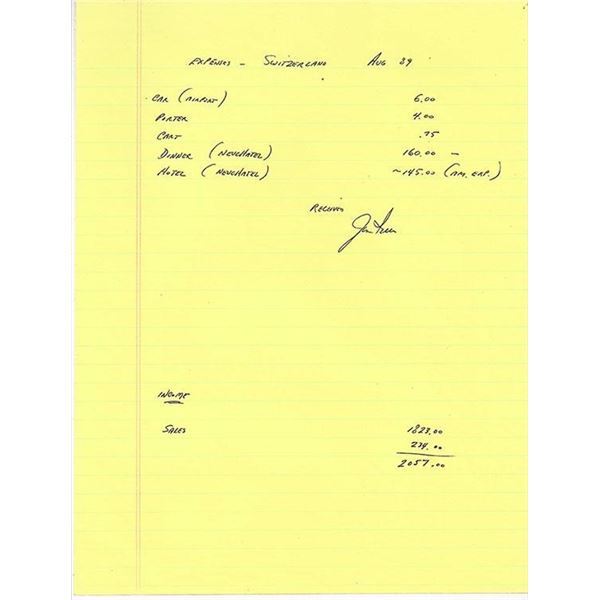 EXPENSES - SWITZERLAND AUG 89
CAR (AIRPORT) 6.00
PORTER 4.00
CART .75
DINNER (NEUCHATEL) 160.00 -
HOTEL (NEUCHATEL) ~145.00 (AM. EXP.)
RECEIVED
INCOME
SALES 1823.00
234.00
2057.00